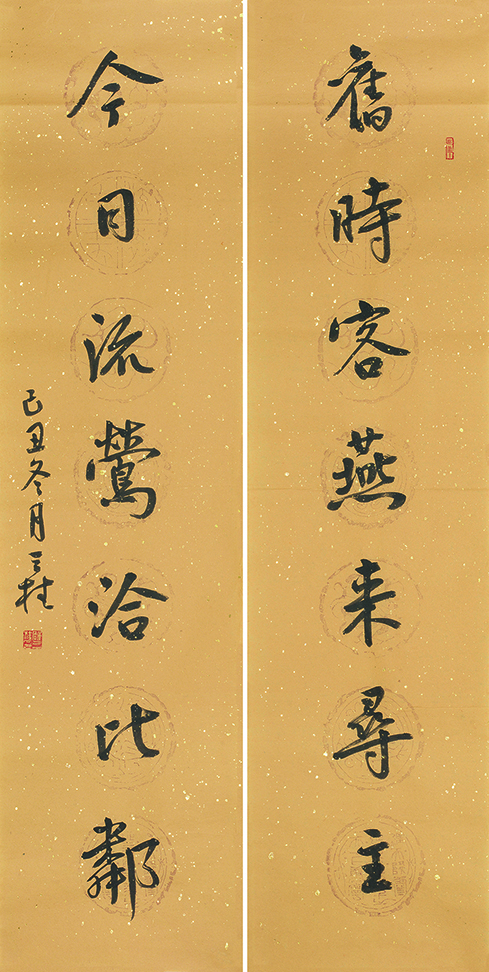 舊時客燕来尋主
今日流鶯洽比鄰
己丑冬月